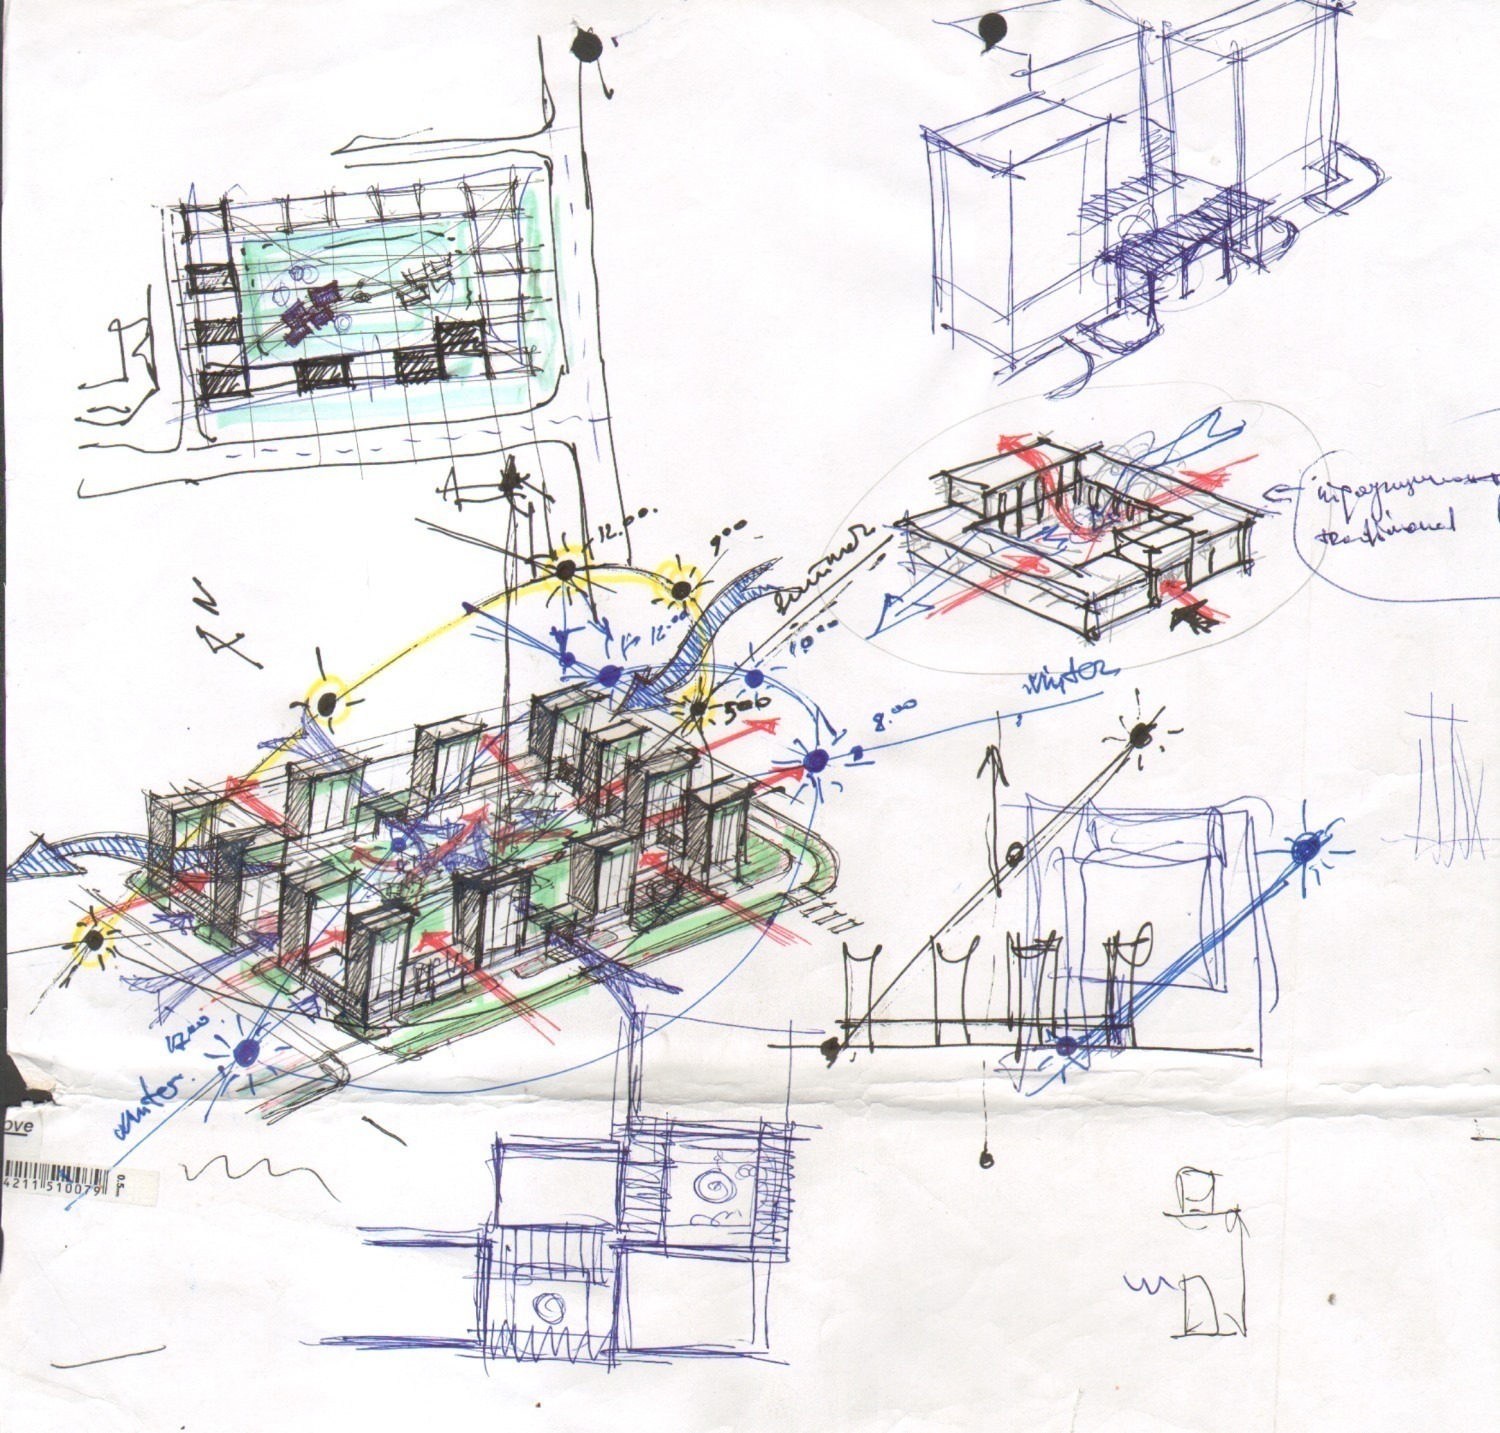 12.00.
9.00
summer
12.00
10.00
традиционал
traditional
winter
5.00
8.00
N
17.00
winter.
ove
4211 510079
0.5